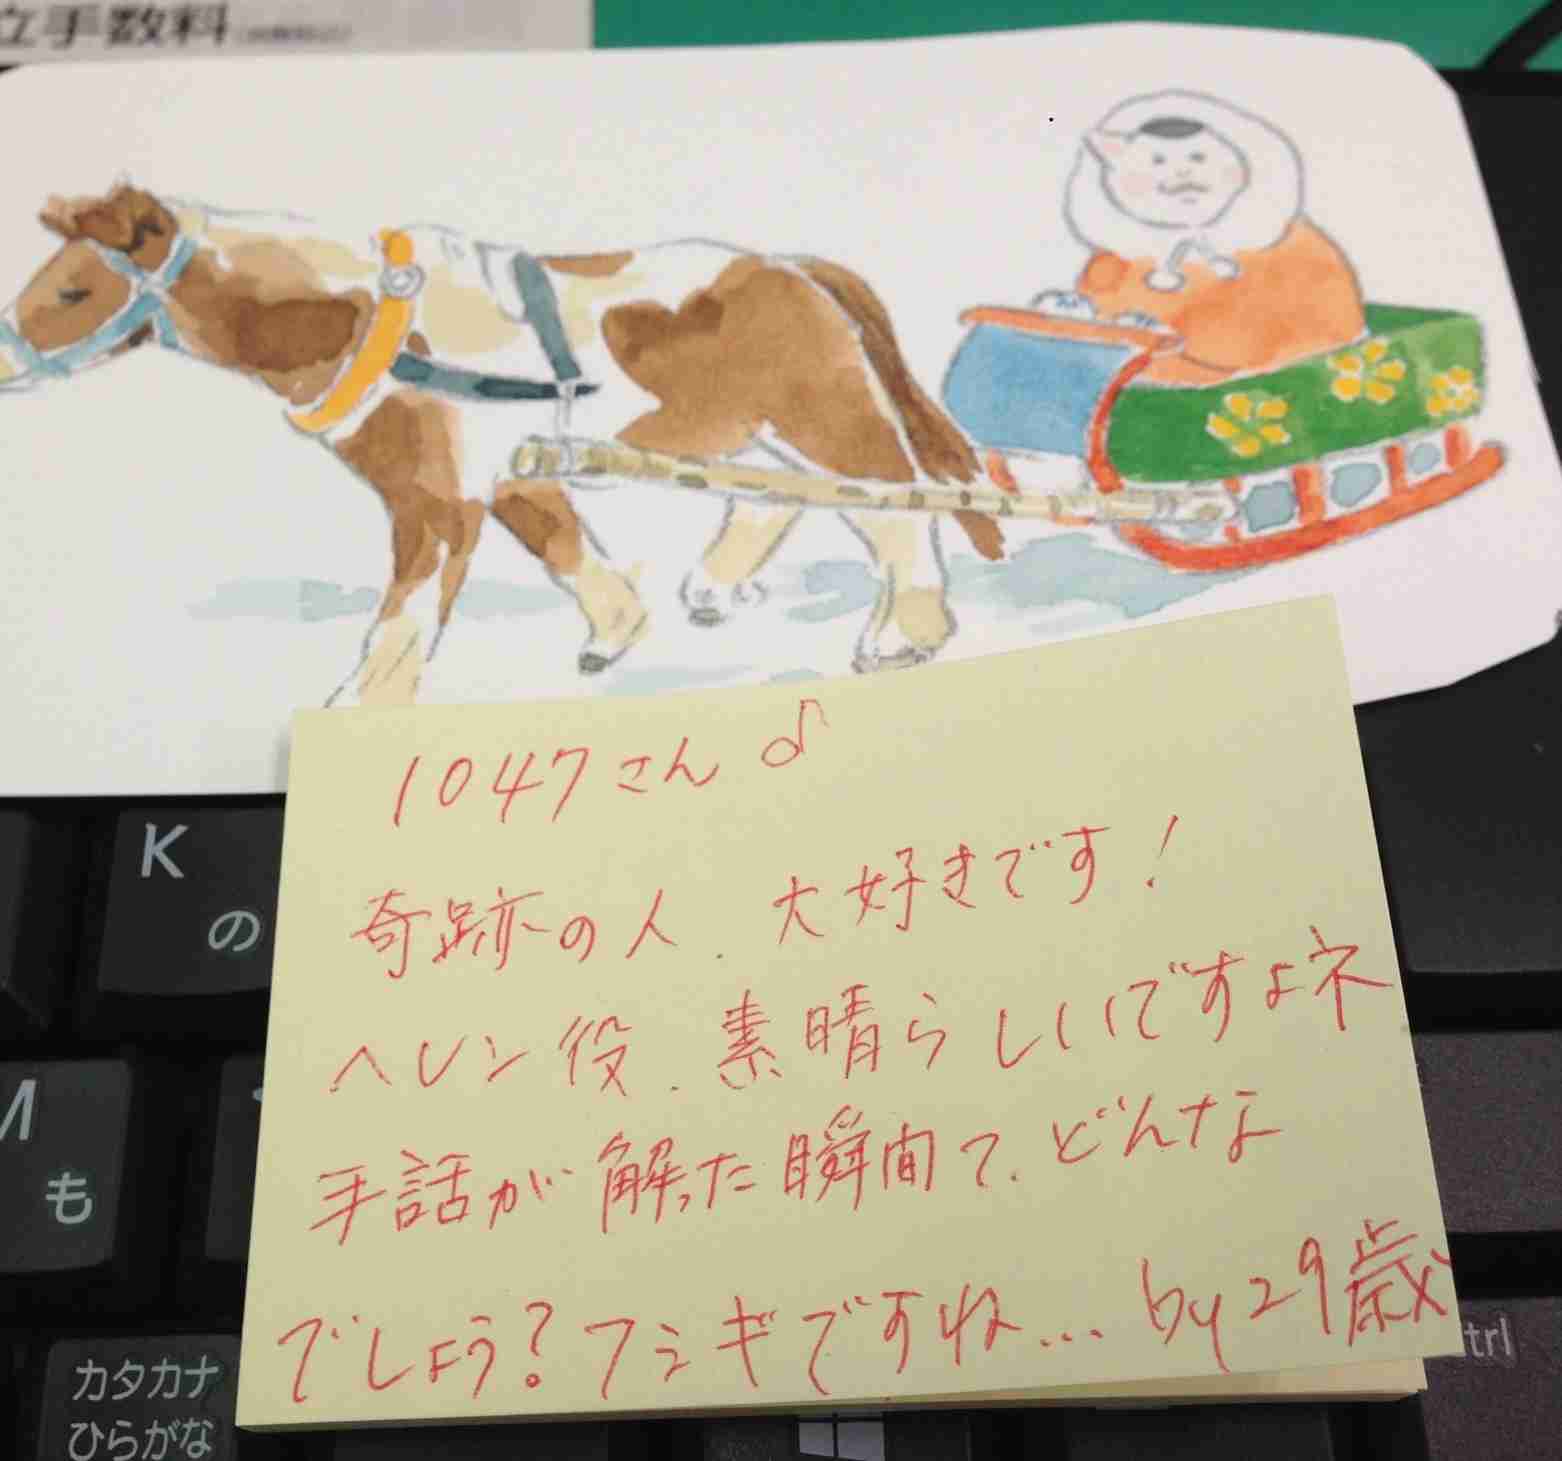 立手数料
1047さん♪
奇跡の人、大好きです!
ヘレン役、素晴らしいですよネ
手話が解った瞬間て、どんな
でしょう?フシギですね… by 29歳
K
の
M
も
カタカナ
ひらがな
trl